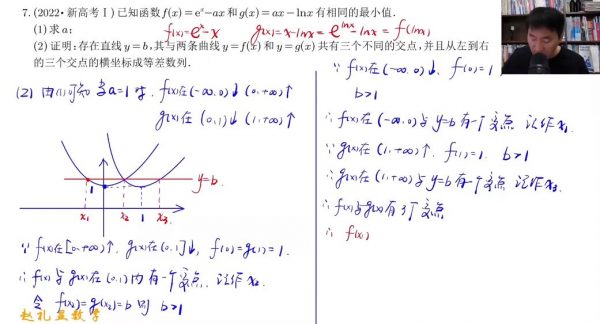 7.(2022·新高考Ⅰ)已知函数f(x)=eˣ-ax和g(x)=ax-lnx有相同的最小值.
(1)求a;
f(x)=eˣ-x
g(x)=x-lnx=e^{lnx}-lnx=f(lnx)
(2)证明:存在直线y=b,其与两条曲线y=f(x)和y=g(x)共有三个不同的交点,并且从左到右
的三个交点的横坐标成等差数列.
(2) 由(1)可知 当a=1时, f(x)在(-∞,0)↓ (0,+∞)↑
g(x)在(0,1)↓ (1,+∞)↑
y=b
1
x₁ x₂ 1 x₃
∵ f(x)在[0,+∞)↑, g(x)在(0,1]↓, f(0)=g(1)=1.
∴ f(x)与g(x)在(0,1)内有一个交点, 记作x₂
令 f(x₂)=g(x₂)=b 则 b>1
∵ f(x)在(-∞,0)↓, f(0)=1
b>1
∴ f(x)在(-∞,0)与y=b有一个交点 记作x₁
∵ g(x)在(1,+∞)↑, f(1)=1, b>1
∴ g(x)在(1,+∞)与y=b有一个交点 记作x₃.
∴ f(x)与g(x)有3个交点
∴ f(x)
赵礼显数学